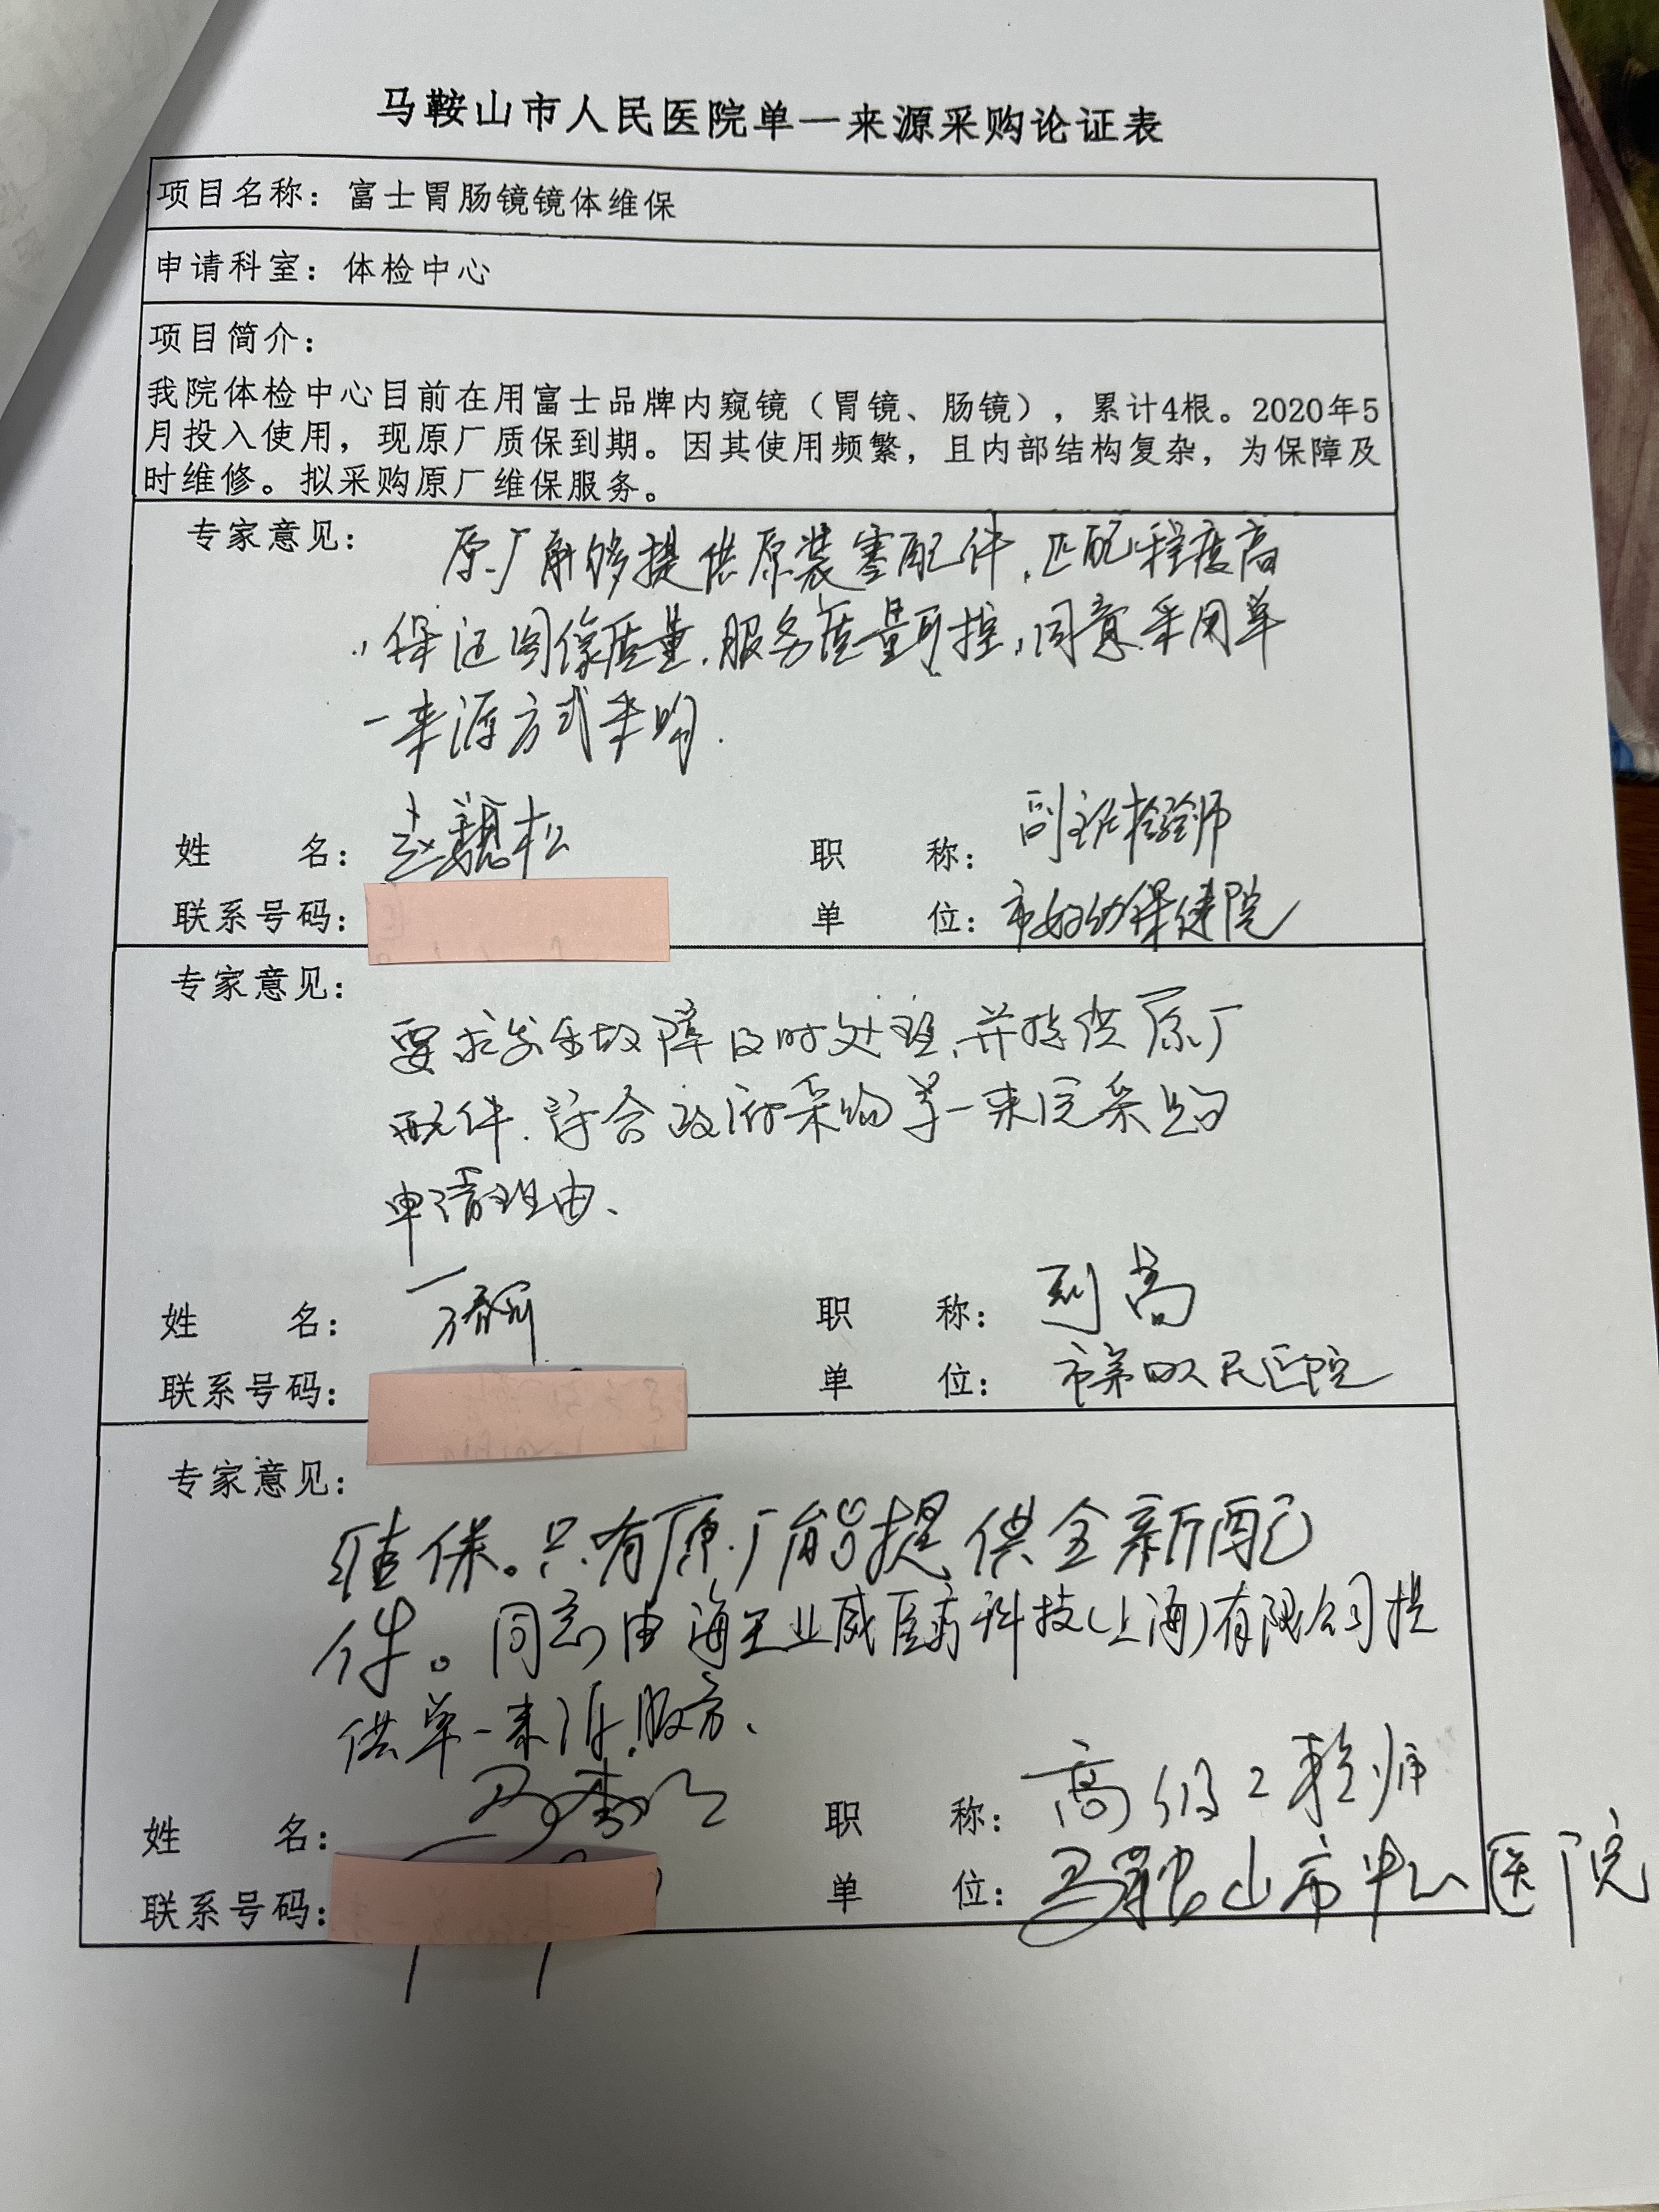 马鞍山市人民医院单一来源采购论证表
项目名称：富士胃肠镜镜体维保
申请科室：体检中心
项目简介：
我院体检中心目前在用富士品牌内窥镜（胃镜、肠镜），累计4根。2020年5
月投入使用，现原厂质保到期。因其使用频繁，且内部结构复杂，为保障及
时维修。拟采购原厂维保服务。
专家意见：
原厂能够提供原装零配件，匹配程度高
，保证图像质量，服务质量可控，同意采用单
一来源方式采购.
姓 名：赵魏松 职 称：副主任检验师
联系号码： 单 位：市妇幼保健院
专家意见：
要求发生故障及时处理，并提供原厂
配件，符合政府采购单一来源采购
申请理由、
姓 名： 职 称：副高
联系号码： 单 位：市第四人民医院
专家意见：
维保。只有原厂能提供全新配
件。同意由海王业威医疗科技(上海)有限公司提
供单一来源服务、
姓 名： 职 称：高级工程师
联系号码： 单 位：马鞍山市中心医院